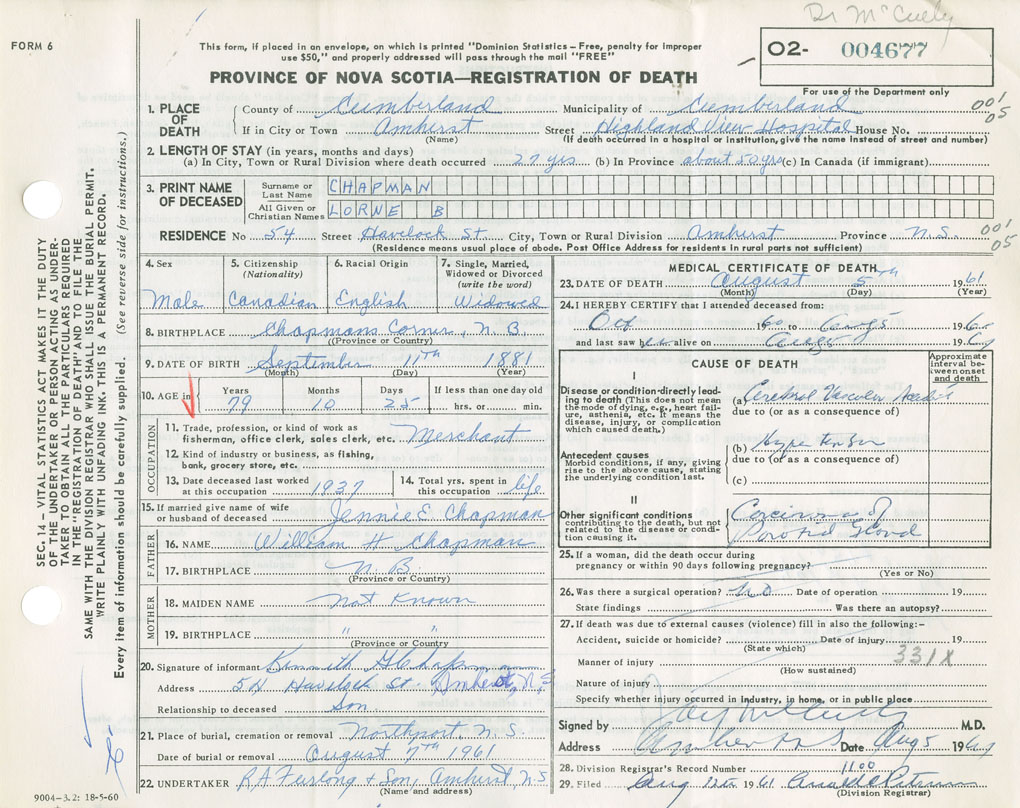 Dr McCully
FORM 6
This form, if placed in an envelope, on which is printed "Dominion Statistics—Free, penalty for improper
use $50," and properly addressed will pass through the mail "FREE"
O2- 004677
For use of the Department only
PROVINCE OF NOVA SCOTIA—REGISTRATION OF DEATH
1. PLACE OF DEATH
County of Cumberland Municipality of Cumberland 001
If in City or Town Amherst Street Highland View Hospital House No. 05
(Name) (If death occurred in a hospital or institution, give the name instead of street and number)
2. LENGTH OF STAY (in years, months and days)
(a) In City, Town or Rural Division where death occurred 27 yrs (b) In Province about 50 yrs (c) In Canada (if immigrant)
3. PRINT NAME OF DECEASED
Surname or Last Name CHAPMAN
All Given or Christian Names LORNE B
RESIDENCE No 54 Street Havelock St. City, Town or Rural Division Amherst Province N.S. 001
(Residence means usual place of abode. Post Office Address for residents in rural parts not sufficient) 05
4. Sex
Male
5. Citizenship
(Nationality)
Canadian
6. Racial Origin
English
7. Single, Married,
Widowed or Divorced
(write the word)
Widowed
8. BIRTHPLACE Chapmans Corner, N.B.
(Province or Country)
9. DATE OF BIRTH September 11TH 1881
(Month) (Day) (Year)
10. AGE in
Years 79
Months 10
Days 25
If less than one day old
hrs. or min.
OCCUPATION
11. Trade, profession, or kind of work as
fisherman, office clerk, sales clerk, etc. Merchant
12. Kind of industry or business, as fishing,
bank, grocery store, etc.
13. Date deceased last worked
at this occupation 1937
14. Total yrs. spent in
this occupation life
15. If married give name of wife
or husband of deceased Jennie E Chapman
FATHER
16. NAME William H Chapman
17. BIRTHPLACE N.B.
(Province or Country)
MOTHER
18. MAIDEN NAME Not Known
19. BIRTHPLACE " "
(Province or Country)
20. Signature of informant Kenneth G Chapman
Address 54 Havelock St. Amherst, N.S
Relationship to deceased Son
21. Place of burial, cremation or removal Northport, N.S.
Date of burial or removal August 7TH 1961
22. UNDERTAKER R A Furlong & Son, Amherst, N.S
(Name and address)
MEDICAL CERTIFICATE OF DEATH
23. DATE OF DEATH August 5TH 1961
(Month) (Day) (Year)
24. I HEREBY CERTIFY that I attended deceased from:
Oct 1960 to Aug 5 196
and last saw h alive on 196
CAUSE OF DEATH
Approximate
interval be-
tween onset
and death
I
Disease or condition directly lead-
ing to death (This does not mean
the mode of dying, e.g., heart fail-
ure, asthenia, etc. It means the
disease, injury, or complication
which caused death.)
(a) Cerebral Vascular Accident
due to (or as a consequence of)
Antecedent causes
Morbid conditions, if any, giving
rise to the above cause, stating
the underlying condition last.
(b) Hypertension
due to (or as a consequence of)
(c)
II
Other significant conditions
contributing to the death, but not
related to the disease or condi-
tion causing it.
Carcinoma of
Parotid Gland
25. If a woman, did the death occur during
pregnancy or within 90 days following pregnancy?
(Yes or No)
26. Was there a surgical operation? No Date of operation 19
State findings Was there an autopsy?
27. If death was due to external causes (violence) fill in also the following:-
Accident, suicide or homicide? Date of injury 19
(State which)
Manner of injury 331X
(How sustained)
Nature of injury
Specify whether injury occurred in industry, in home, or in public place
Signed by M.D.
Address Amherst N S Date Aug 5 196
28. Division Registrar's Record Number 1100
29. Filed Aug 1961
(Division Registrar)
SEC. 14 — VITAL STATISTICS ACT MAKES IT THE DUTY
OF THE UNDERTAKER OR PERSON ACTING AS UNDER-
TAKER TO OBTAIN ALL THE PARTICULARS REQUIRED
IN THE "REGISTRATION OF DEATH" AND TO FILE THE
SAME WITH THE DIVISION REGISTRAR WHO SHALL ISSUE THE BURIAL PERMIT.
WRITE PLAINLY WITH UNFADING INK. THIS IS A PERMANENT RECORD.
Every item of information should be carefully supplied. (See reverse side for instructions.)
9004-3.2: 18-5-60